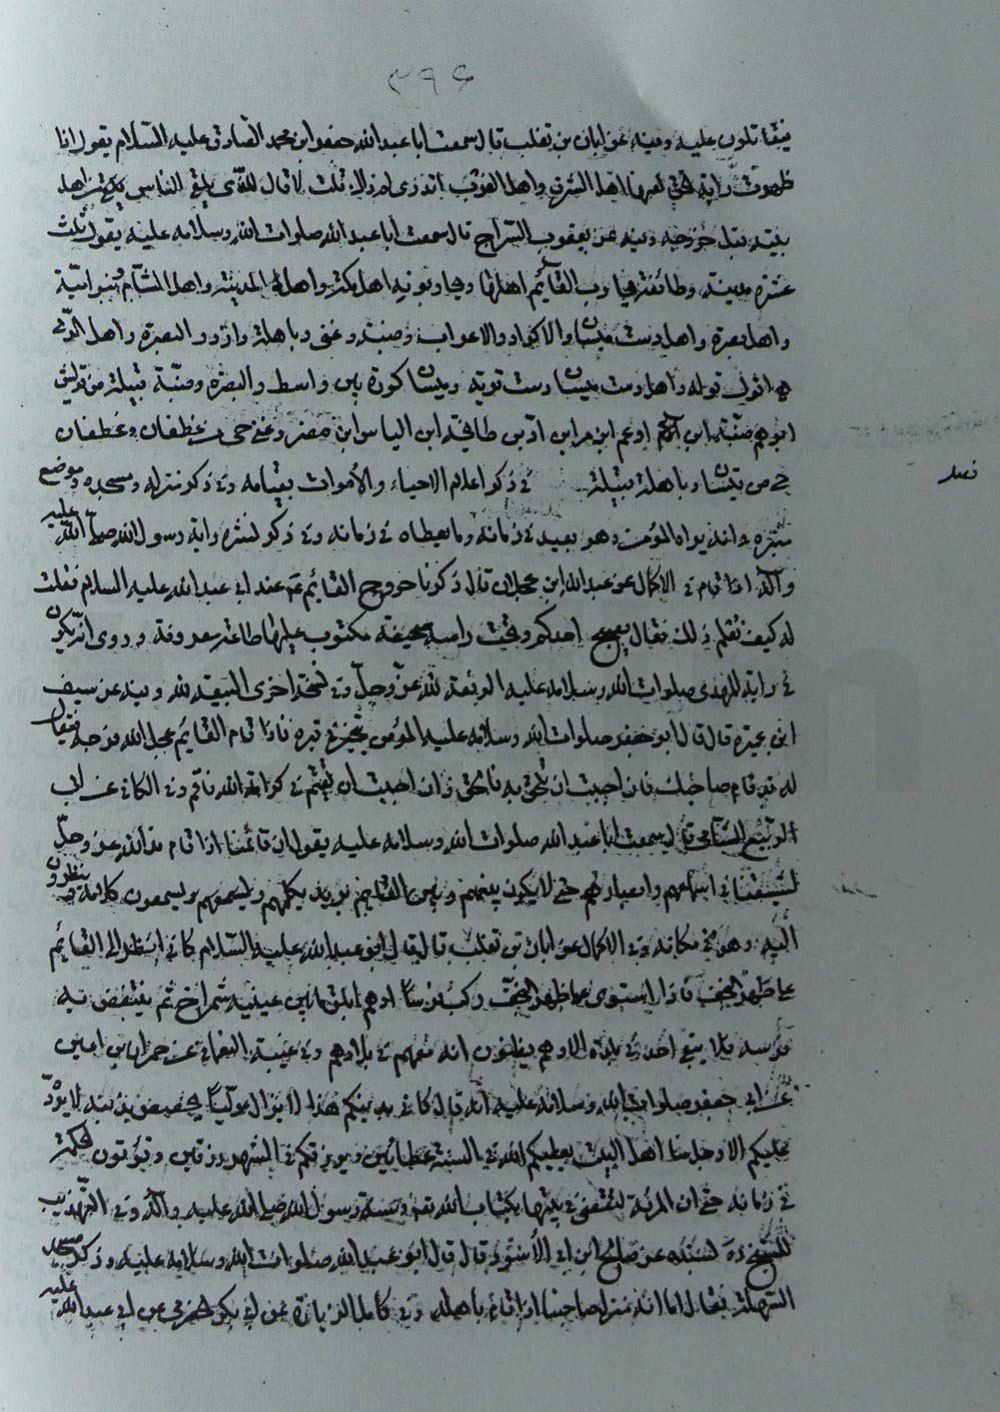 ٣٩٤
يتقاتلون عليه وفيه عن ابان بن تغلب قال سمعت ابا عبد الله جعفر ابن محمد الصادق عليه السلام يقول اذا
ظهرت راية الحق لعنها اهل الشرق واهل الغرب اتدرى لم ذلك قلت لا قال للذى يلقى الناس من اهل
بيته قبل خروجه وفيه عن يعقوب السراج قال سمعت ابا عبد الله صلوات الله وسلامه عليه يقول ثلث
عشرة مدينة وطائفة يحارب القائم اهلها ويحاربونه اهل مكة واهل المدينة واهل الشام وبنو امية
واهل بصرة واهل دست ميسان والاكراد والاعراب وضبة وغنى وباهلة وازد والبصرة واهل الرى
اقول قوله واهل دست ميسان دست قرية وميسان كورة بين واسط والبصرة وضبة قبيلة من قريش
ابوهم ضبة ابن اد عم ابن مر ابن اد بن طابخة ابن الياس ابن مضر وغنى حى من غطفان وغطفان
حى من قيس وباهلة قبيلة في ذكر اعلام الاحياء والأموات بقيامه وفى ذكر منزله ومسجده وموضع
فصل
منبره وانه يراه المؤمن وهو بعيد فى زمانه وما يعطاه فى زمانه وفى ذكر نشره راية رسول الله صلى الله عليه
وآله اذا قام فى الاكمال عن عبد الله ابن عجلان قال ذكرنا خروج القائم عم عند ابى عبد الله عليه السلام فقلت
له كيف نعلم ذلك فقال يصبح احدكم وتحت راسه صحيفة مكتوب عليها طاعة معروفة وروى انه يكون
فى راية المهدى صلوات الله وسلامه عليه الرفعة لله عز وجل وفى نسخة اخرى البيعة لله وفيه عن سيف
ابن عميرة قال قال ابو جعفر صلوات الله وسلامه عليه المؤمن يخير فى قبره فاذا قام القائم عجل الله فرجه فيقال
له قد قام صاحبك فان احببت ان تلحق به فالحق وان احببت ان تقيم فى كرامة الله فاقم وفى الكافى عن ابى
الربيع الشامى قال سمعت ابا عبد الله صلوات الله وسلامه عليه يقول ان قائمنا اذا قام مد الله عز وجل
لشيعتنا فى اسماعهم وابصارهم حتى لا يكون بينهم وبين القائم بريد يكلمهم ويسمعهم ويسمعون كلامه وينظرون
اليه وهو فى مكانه وفى الاكمال عن ابان بن تغلب قال قال ابو عبد الله عليه السلام كانى انظر الى القائم
على ظهر النجف فاذا استوى على ظهر النجف ركب فرسا ادهم ابلق بين عينيه شمراخ ثم ينتفض به
فرسه فلا يبقى احد فى بلدة الا وهم يظنون انه معهم فى بلادهم وفى غيبة النعمانى عن حمران بن اعين
عن ابى جعفر صلوات الله وسلامه عليه انه قال كانى بدينكم هذا لا يزال موليا يفحص بذنبه لا يرده
عليكم الا رجل منا اهل البيت يعطيكم الله فى السنة عطائين ويرزقكم فى الشهر رزقين وتؤتون الحكمة
فى زمانه حتى ان المرئة لتقضى فى بيتها بكتاب الله تع وسنة رسول الله صلى الله عليه وآله وفى التهذيب
للشيخ ره بسنده عن صالح ابن ابى الأسود قال قال ابو عبد الله صلوات الله وسلامه عليه وذكر مسجد
السهلة فقال اما انه منزل صاحبنا اذا قام باهله وفى كامل الزيارة عن ابى بكر الحضرمى عن ابى عبد الله عليه